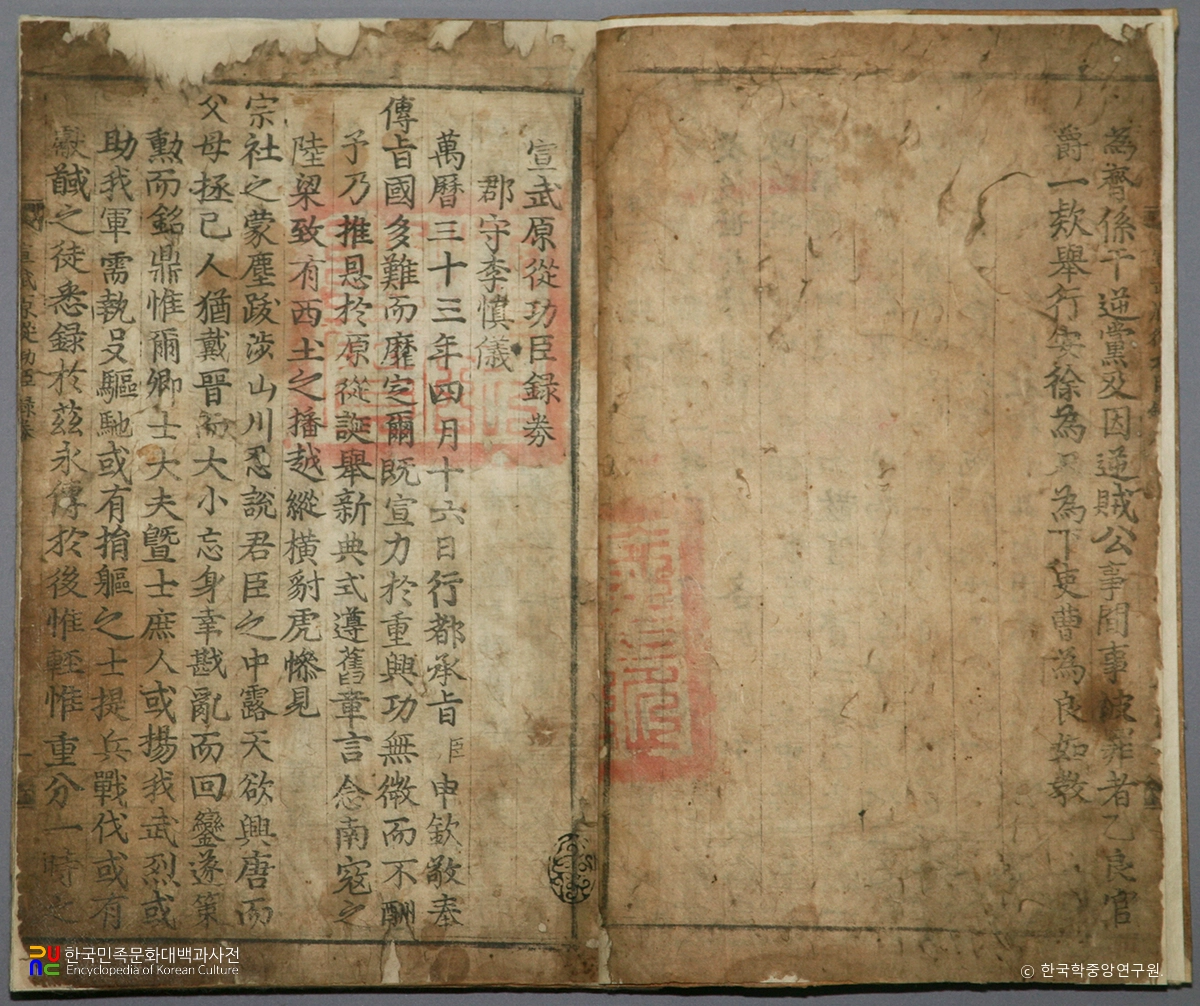 為齊係干逆黨及因逆賊公事間事波罪者乙良官
爵一款舉行安徐為只為下吏曹為良如敎
宣武原從功臣錄券
郡守李愼儀
萬曆三十三年四月十六日行都承旨臣申欽敬奉
傳旨國多難而靡定爾旣宣力於重興功無微而不酬
予乃推恩於原從誕舉新典式遵舊章言念南寇之
陸梁致有西土之播越縱橫豺虎慘見
宗社之蒙塵跋涉山川忍說君臣之中露天欲興唐而
父母拯己人猶戴晉而大小忘身幸戡亂而回鑾遂策
勳而銘鼎惟爾卿士大夫曁士庶人或揚我武烈或
助我軍需執殳驅馳或有捐軀之士提兵戰伐或有
獻馘之徒悉錄於玆永傳於後惟輕惟重分一時之
宣武原從功臣錄券
한국민족문화대백과사전
Encyclopedia of Korean Culture
© 한국학중앙연구원.